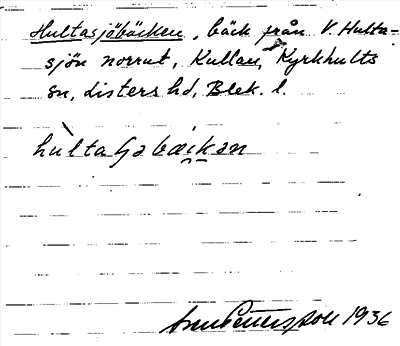 Hultasjöbäcken, bäck från V. Hulta-
sjön norrut, Kullan, Kyrkhults
sn, Listers hd, Blek. l.
hultaʃəbækən
1936